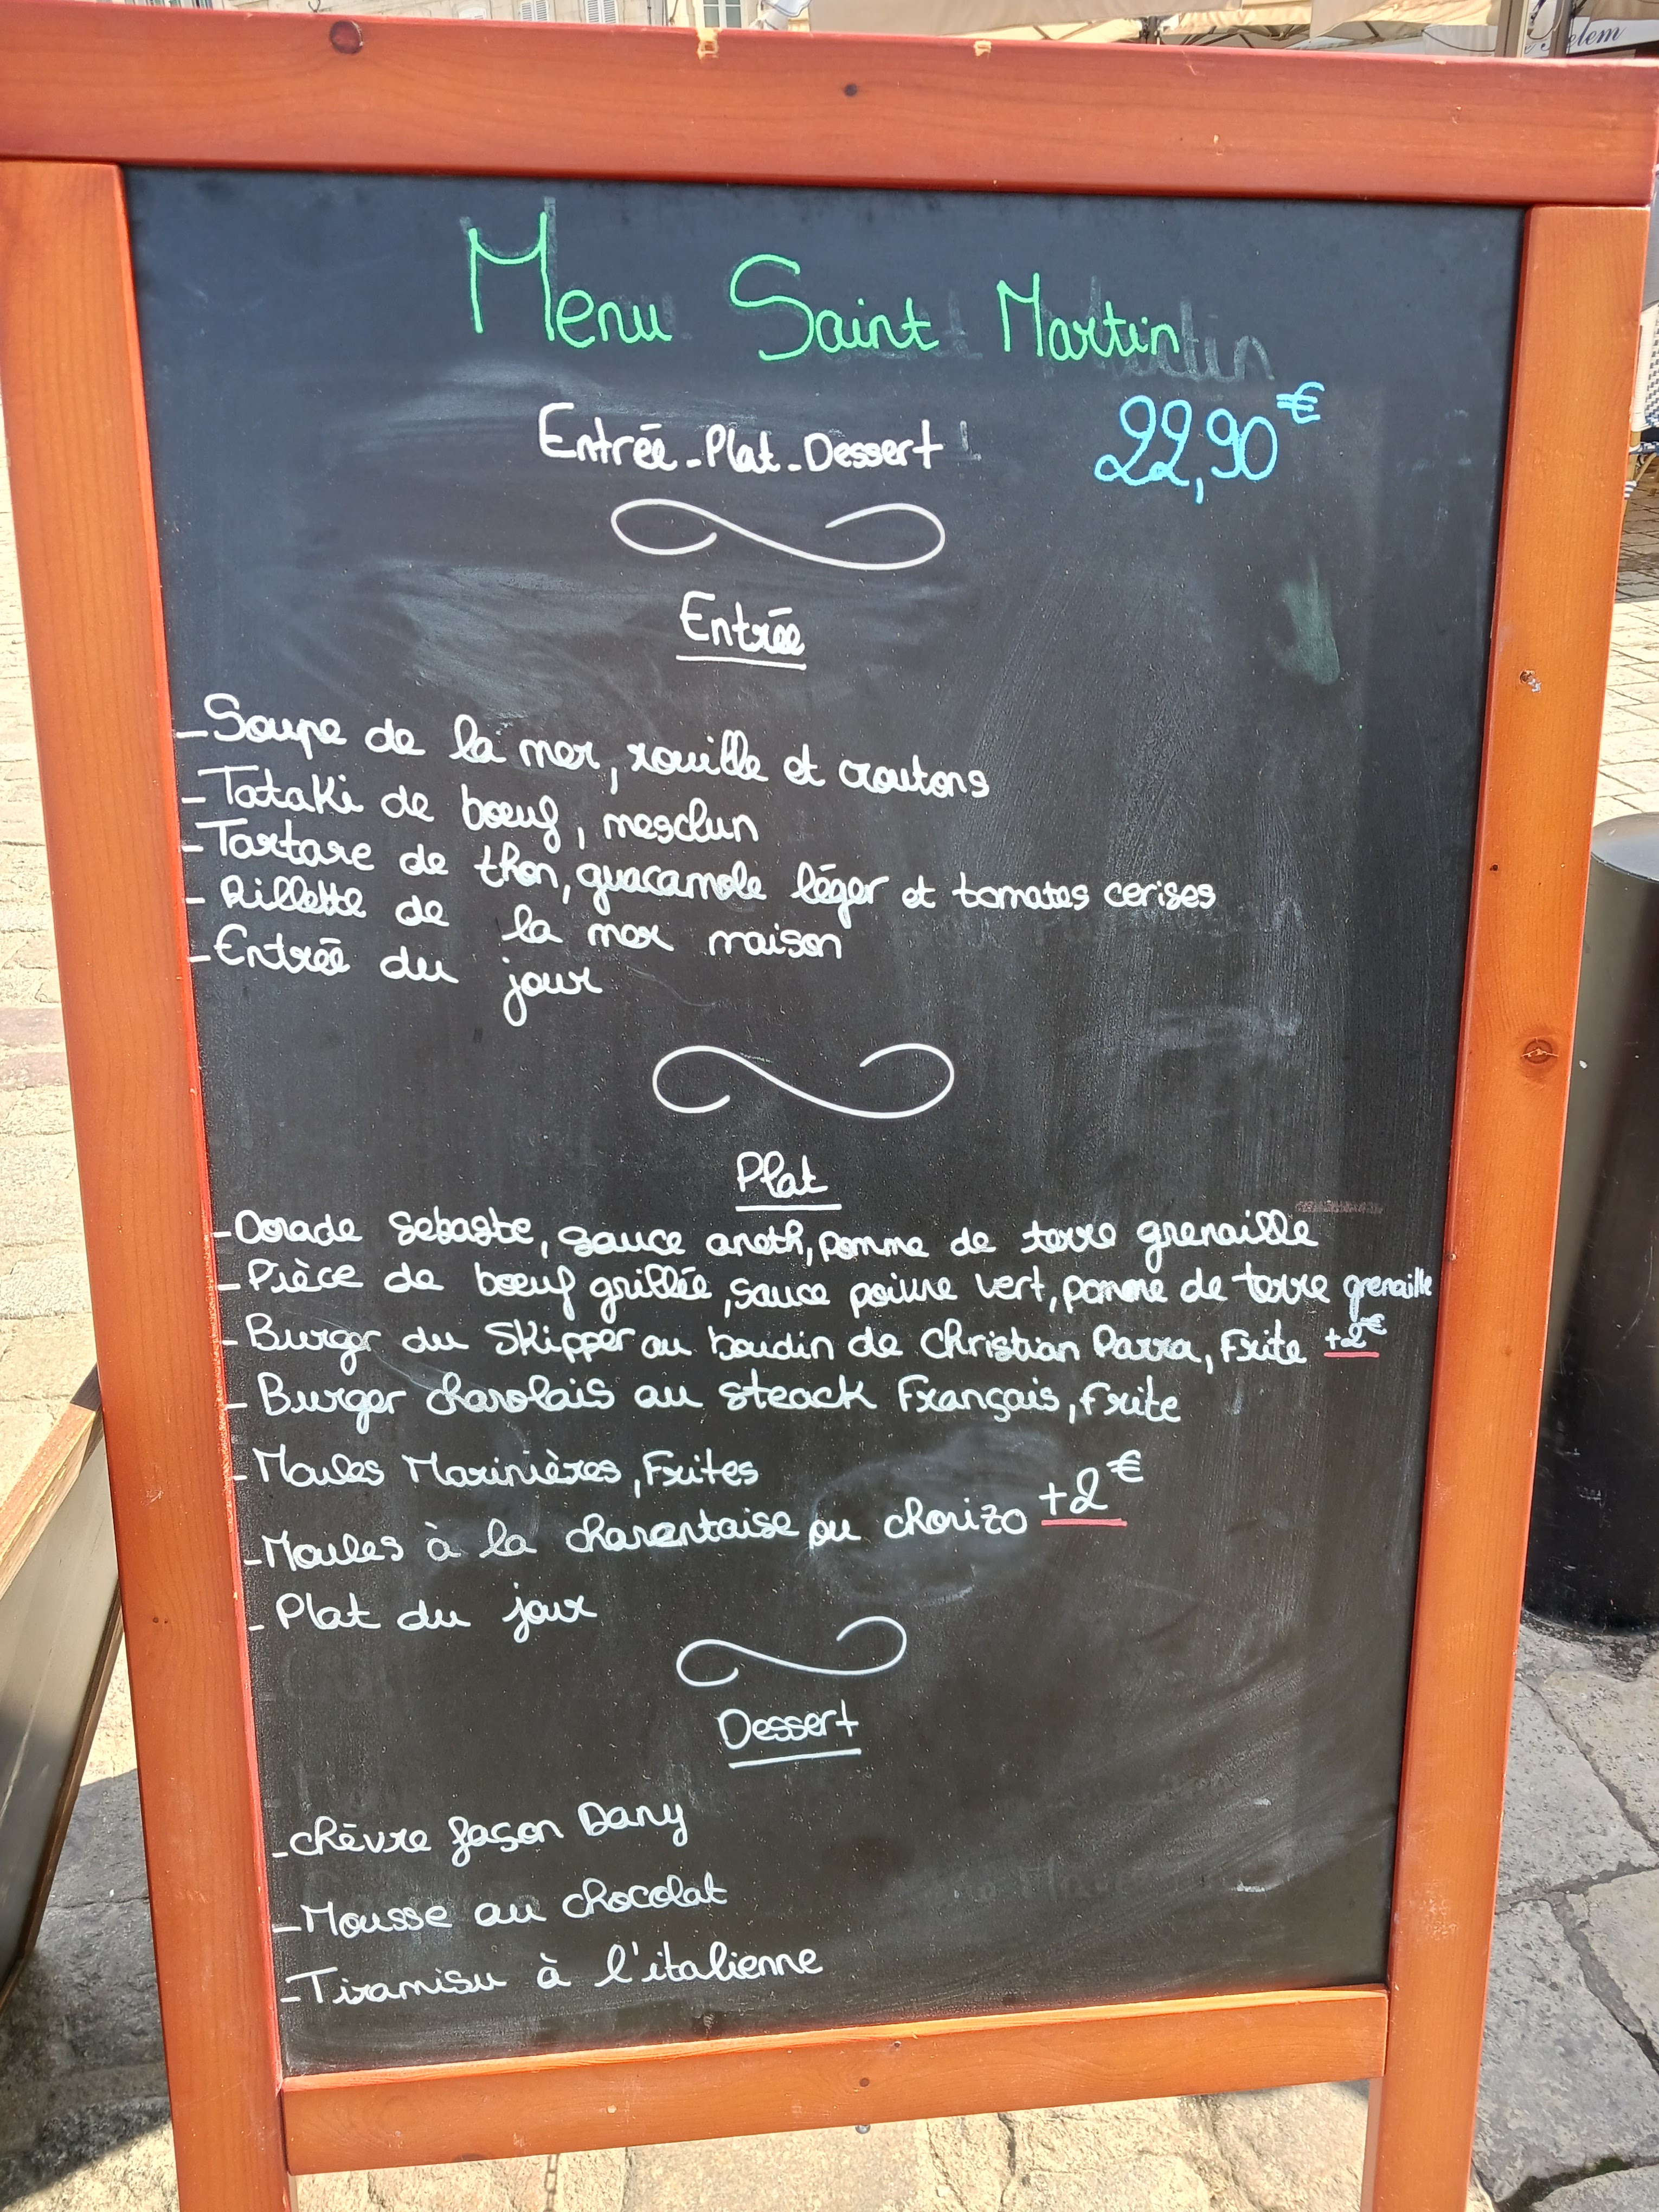 Menu Saint Martin
Entrée-Plat-Dessert 22,90€
Entrée
-Soupe de la mer, rouille et croutons
-Tataki de bœuf, mesclun
-Tartare de thon, guacamole léger et tomates cerises
-Rillette de la mer maison
-Entrée du jour
Plat
-Dorade sebaste, sauce aneth, pomme de terre grenaille
-Pièce de bœuf grillée, sauce poivre vert, pomme de terre grenaille
-Burger du Skipper au boudin de Christian Parra, Frite +2€
-Burger charolais au steack Français, frite
-Moules Marinières, Frites
-Moules à la charentaise ou chorizo +2€
-Plat du jour
Dessert
-chèvre façon Dany
-Mousse au chocolat
-Tiramisu à l'italienne